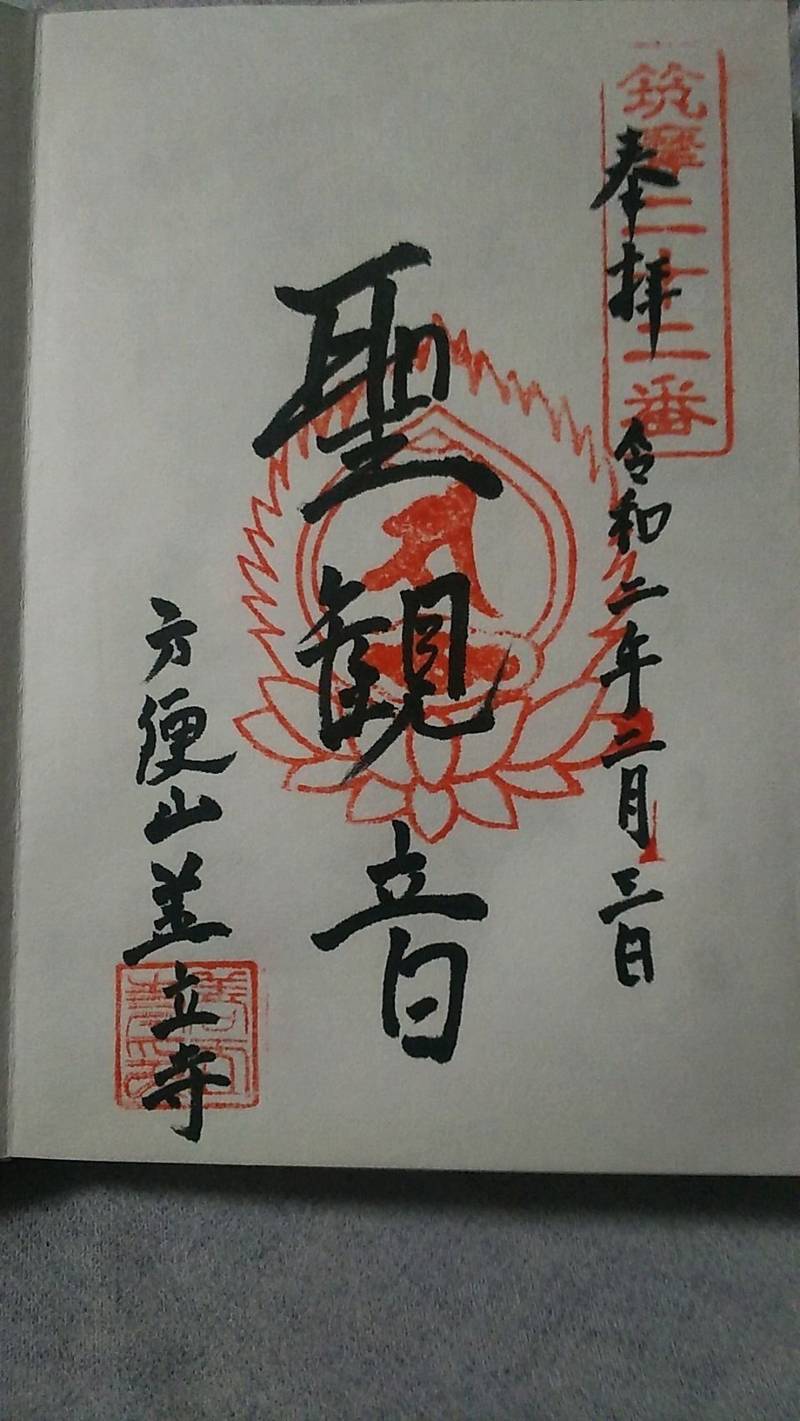 筑摩二十二番
奉拝 令和二年二月三日
聖観音
方便山盖立寺